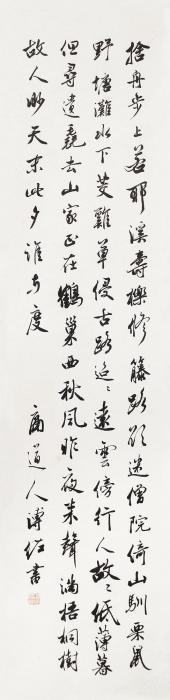 捨舟步上若耶溪壽櫟修藤路欲迷僧院倚山馴栗鼠
野塘灘水下茭雞草侵古路迢〻遠雲傍行人故〻低薄暮
但尋遺堯去山家正在鶴巢西秋風昨夜來聲滿梧桐樹
故人眇天末此夕誰與度
商道人溥伒書